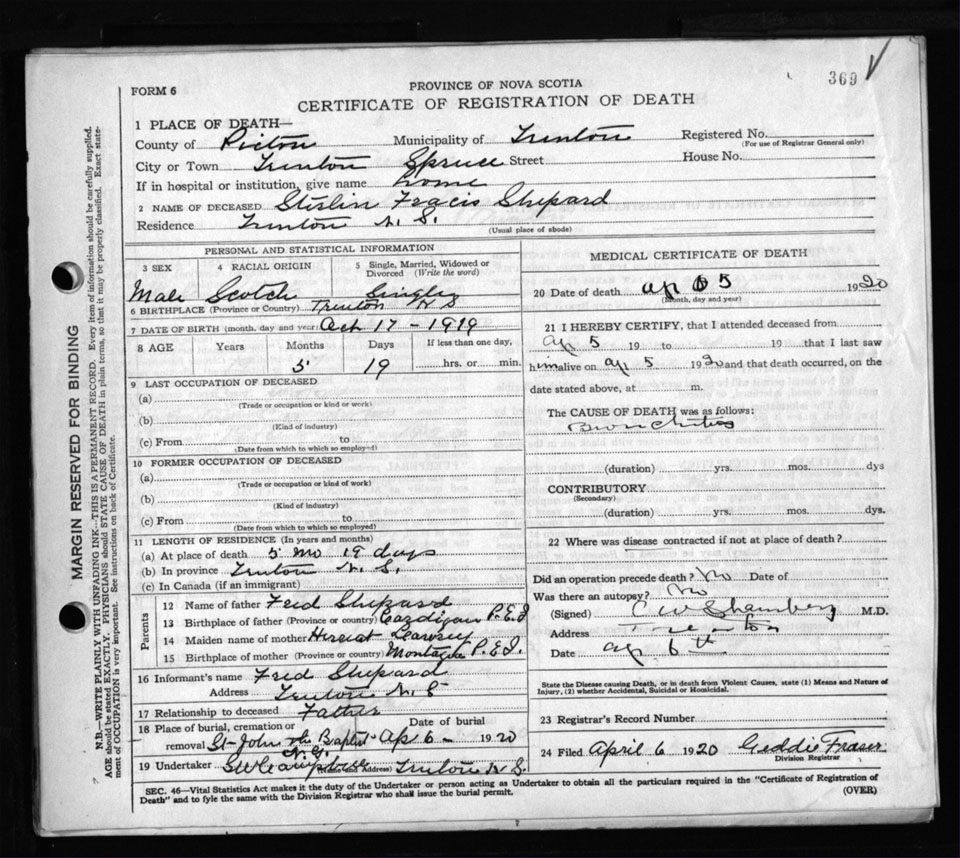 369
PROVINCE OF NOVA SCOTIA
FORM 6
CERTIFICATE OF REGISTRATION OF DEATH
1 PLACE OF DEATH—
County of Pictou Municipality of Trenton Registered No.
(For use of Registrar General only)
City or Town Trenton Spruce Street House No.
If in hospital or institution, give name home
2 NAME OF DECEASED Sterlin Fracis Shepard
Residence Trenton N. S.
(Usual place of abode)
PERSONAL AND STATISTICAL INFORMATION
3 SEX 4 RACIAL ORIGIN 5 Single, Married, Widowed or Divorced (Write the word)
Male Scotch Single
6 BIRTHPLACE (Province or Country) Trenton N S
7 DATE OF BIRTH (month, day and year) Oct 17 - 1919
8 AGE Years Months Days If less than one day,
5 19 hrs. or min.
9 LAST OCCUPATION OF DECEASED
(a)
(Trade or occupation or kind or work)
(b)
(Kind of industry)
(c) From to
(Date from which to which so employed)
10 FORMER OCCUPATION OF DECEASED
(a)
(Trade or occupation or kind of work)
(b)
(Kind of industry)
(c) From to
(Date from which to which so employed)
11 LENGTH OF RESIDENCE (In years and months)
(a) At place of death 5 mo 19 days
(b) In province Trenton N. S.
(c) In Canada (if an immigrant)
Parents
12 Name of father Fred Shepard
13 Birthplace of father (Province or country) Cardigan P.E.I
14 Maiden name of mother
15 Birthplace of mother (Province or country) Montague P.E.I.
16 Informant's name Fred Shepard
Address Trenton N. S
17 Relationship to deceased Father
18 Place of burial, cremation or removal St John the Baptist N. G. Date of burial Ap 6 - 1920
19 Undertaker (Name and Address) Trenton N S.
MEDICAL CERTIFICATE OF DEATH
20 Date of death ap 5 1920
(Month, day and year)
21 I HEREBY CERTIFY, that I attended deceased from
ap 5 19 to 19 that I last saw
him alive on ap 5 1920 and that death occurred, on the
date stated above, at m.
The CAUSE OF DEATH was as follows:
Bronchitis
(duration) yrs. mos. dys
CONTRIBUTORY
(Secondary)
(duration) yrs. mos. dys.
22 Where was disease contracted if not at place of death?
Did an operation precede death? No Date of
Was there an autopsy? No
(Signed) M.D.
Address Trenton
Date ap 6th
State the Disease causing Death, or in death from Violent Causes, state (1) Means and Nature of
Injury, (2) whether Accidental, Suicidal or Homicidal.
23 Registrar's Record Number
24 Filed April 6 1920 Geddie Fraser
Division Registrar
SEC. 46—Vital Statistics Act makes it the duty of the Undertaker or person acting as Undertaker to obtain all the particulars required in the "Certificate of Registration of
Death" and to fyle the same with the Division Registrar who shall issue the burial permit. (OVER)
MARGIN RESERVED FOR BINDING
N.B.—WRITE PLAINLY WITH UNFADING INK—THIS IS A PERMANENT RECORD. Every item of information should be carefully supplied.
AGE should be stated EXACTLY. PHYSICIANS should STATE CAUSE OF DEATH in plain terms, so that it may be properly classified. Exact state-
ment of OCCUPATION is very important. See instructions on back of Certificate.